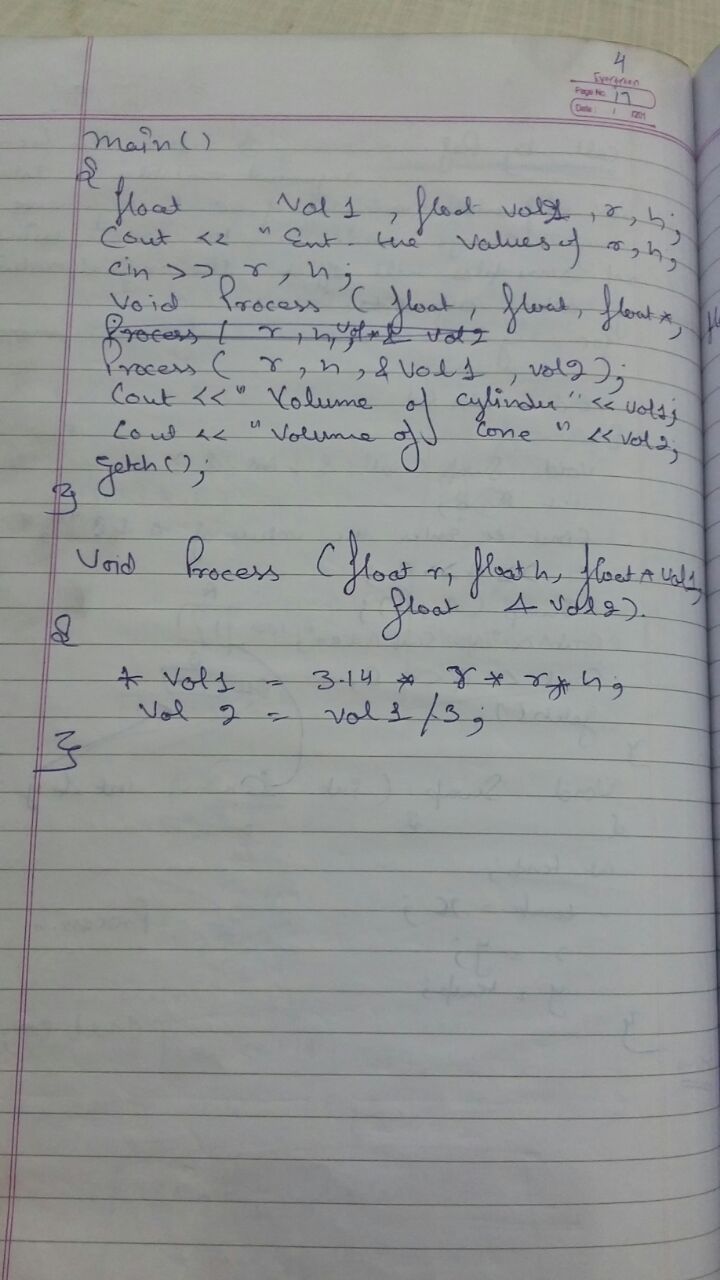 4
Evergreen
Page No. 17
Date: / /201
main()
{
float vol 1 , float vol2 , r, h;
Cout << " Ent. the values of r, h;
cin >> r, h;
Void Process ( float, float, float*,
Process ( r, h, vol*& vol2
Process ( r, h, & Vol 1 , vol2 );
Cout << " Volume of cylinder " << vol1;
Cout << " Volume of Cone " << vol2;
getch();
}
Void Process ( float r, float h, float * vol1,
float & vol2).
{
* Vol1 = 3.14 * r * r * h;
Vol 2 = vol 1 /3;
}